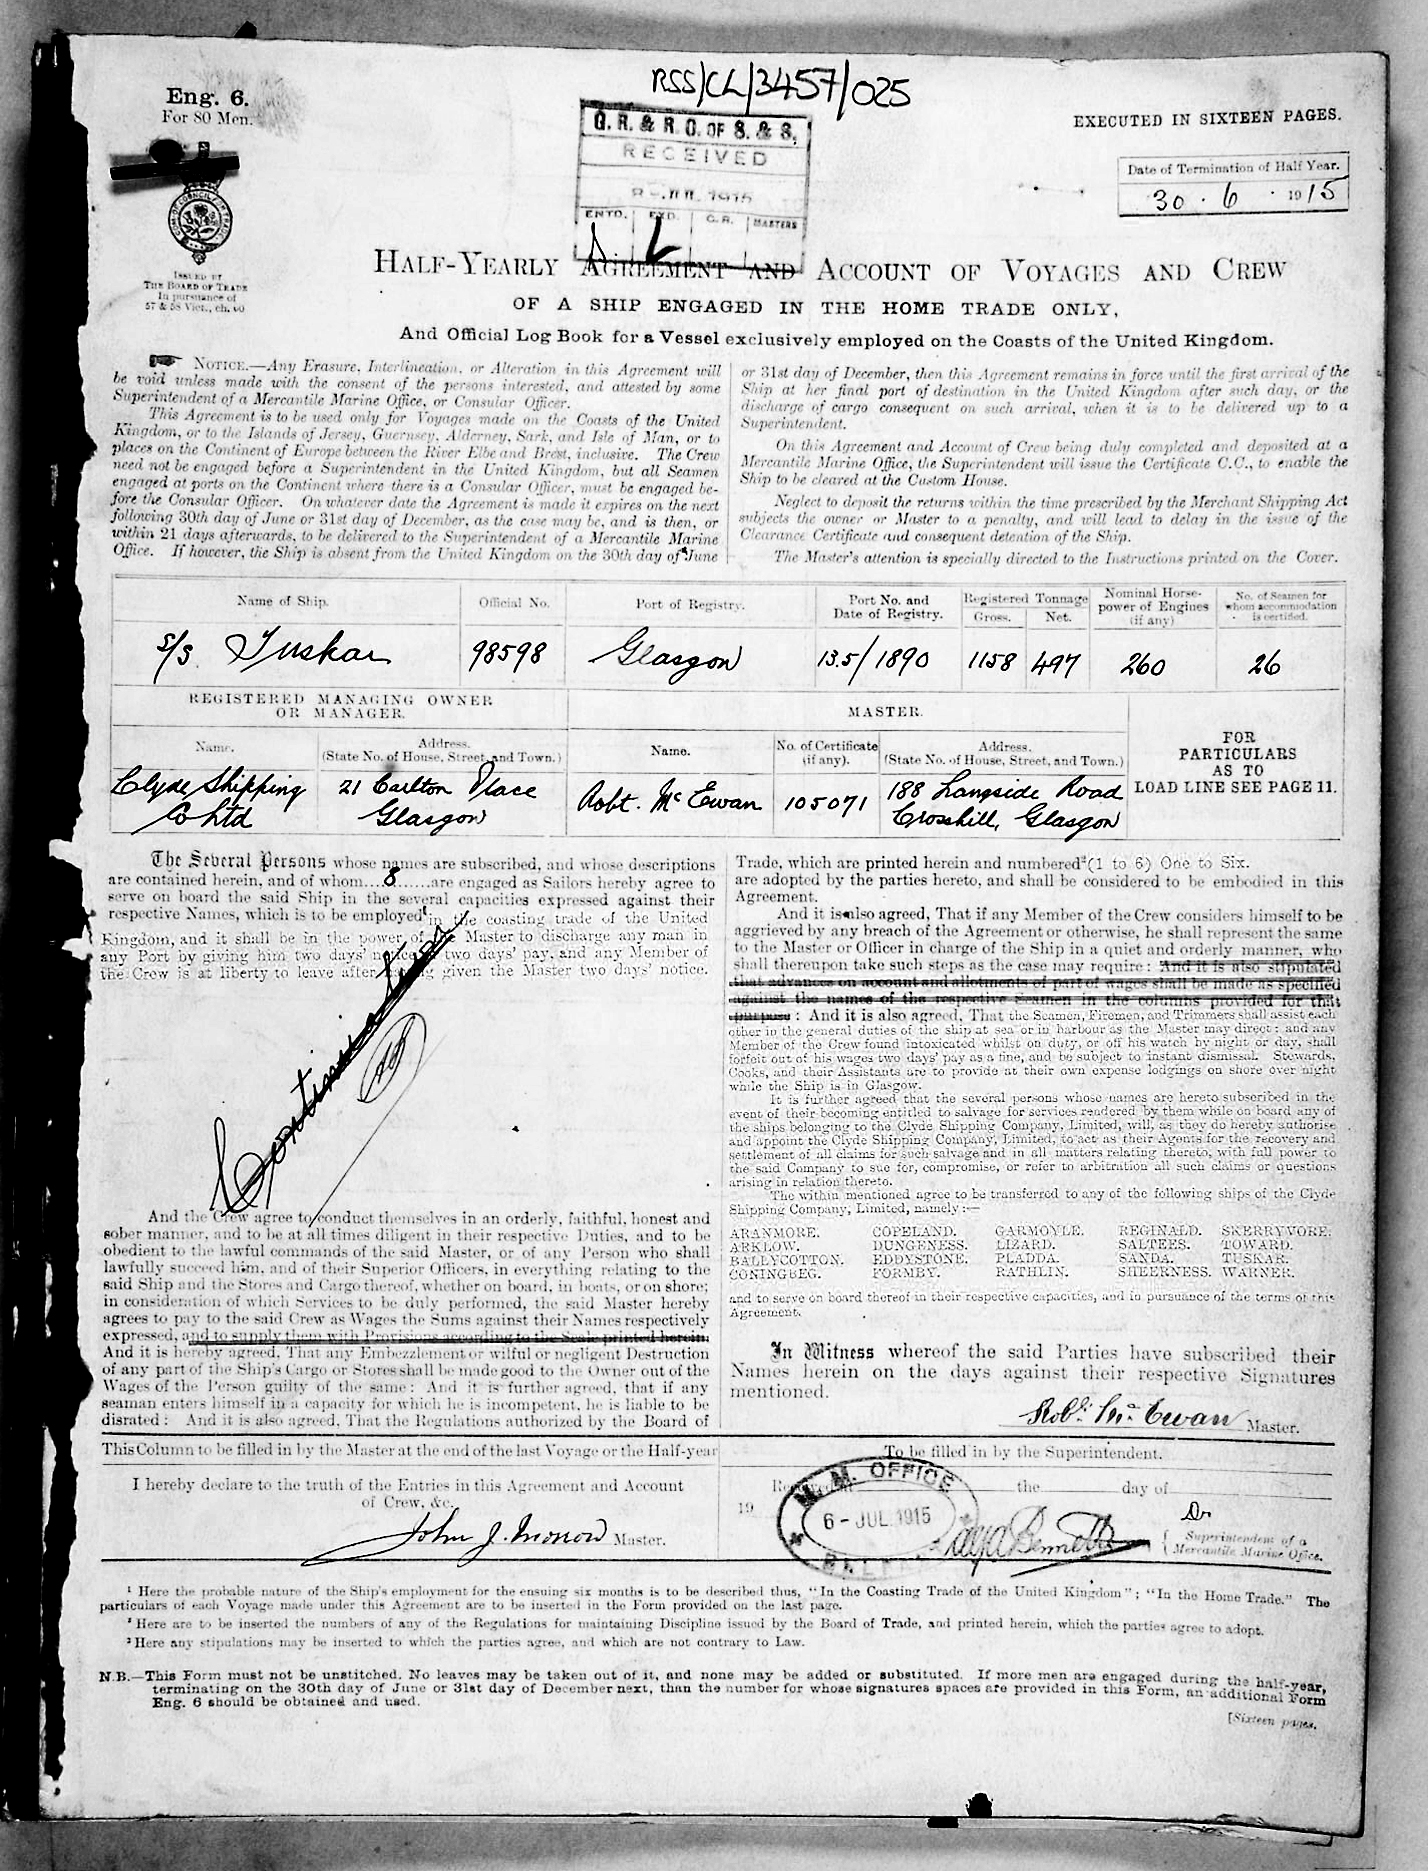 RSS/CL/3457/025
Eng. 6.
For 80 Men.
G. R. & R. O. OF S. & S.
RECEIVED
1915
ENTD. EXD. G.R. MASTERS
EXECUTED IN SIXTEEN PAGES.
Date of Termination of Half Year.
30 . 6 . 1915
ISSUED BY
THE BOARD OF TRADE
In pursuance of
57 & 58 Vict., ch. 60
HALF-YEARLY AGREEMENT AND ACCOUNT OF VOYAGES AND CREW
OF A SHIP ENGAGED IN THE HOME TRADE ONLY,
And Official Log Book for a Vessel exclusively employed on the Coasts of the United Kingdom.
NOTICE.—Any Erasure, Interlineation, or Alteration in this Agreement will
be void unless made with the consent of the persons interested, and attested by some
Superintendent of a Mercantile Marine Office, or Consular Officer.
This Agreement is to be used only for Voyages made on the Coasts of the United
Kingdom, or to the Islands of Jersey, Guernsey, Alderney, Sark, and Isle of Man, or to
places on the Continent of Europe between the River Elbe and Brest, inclusive. The Crew
need not be engaged before a Superintendent in the United Kingdom, but all Seamen
engaged at ports on the Continent where there is a Consular Officer, must be engaged be-
fore the Consular Officer. On whatever date the Agreement is made it expires on the next
following 30th day of June or 31st day of December, as the case may be, and is then, or
within 21 days afterwards, to be delivered to the Superintendent of a Mercantile Marine
Office. If however, the Ship is absent from the United Kingdom on the 30th day of June
or 31st day of December, then this Agreement remains in force until the first arrival of the
Ship at her final port of destination in the United Kingdom after such day, or the
discharge of cargo consequent on such arrival, when it is to be delivered up to a
Superintendent.
On this Agreement and Account of Crew being duly completed and deposited at a
Mercantile Marine Office, the Superintendent will issue the Certificate C.C., to enable the
Ship to be cleared at the Custom House.
Neglect to deposit the returns within the time prescribed by the Merchant Shipping Act
subjects the owner or Master to a penalty, and will lead to delay in the issue of the
Clearance Certificate and consequent detention of the Ship.
The Master's attention is specially directed to the Instructions printed on the Cover.
Name of Ship. Official No. Port of Registry. Port No. and Date of Registry. Registered Tonnage Gross. Net. Nominal Horse-power of Engines (if any) No. of Seamen for whom accommodation is certified.
S/S Tuskar 98598 Glasgow 135/1890 1158 497 260 26
REGISTERED MANAGING OWNER
OR MANAGER.
MASTER.
Name. Address. (State No. of House, Street, and Town.) Name. No. of Certificate (if any). Address. (State No. of House, Street, and Town.)
Clyde Shipping 21 Carlton Place Robt. McEwan 105071 188 Langside Road
Co Ltd Glasgow Crosshill, Glasgow
FOR
PARTICULARS
AS TO
LOAD LINE SEE PAGE 11.
The Several Persons whose names are subscribed, and whose descriptions
are contained herein, and of whom....8......are engaged as Sailors hereby agree to
serve on board the said Ship in the several capacities expressed against their
respective Names, which is to be employed¹ in the coasting trade of the United
Kingdom, and it shall be in the power of Master to discharge any man in
any Port by giving him two days' notice two days' pay, and any Member of
the Crew is at liberty to leave after given the Master two days' notice.
And the Crew agree to conduct themselves in an orderly, faithful, honest and
sober manner, and to be at all times diligent in their respective Duties, and to be
obedient to the lawful commands of the said Master, or of any Person who shall
lawfully succeed him, and of their Superior Officers, in everything relating to the
said Ship and the Stores and Cargo thereof, whether on board, in boats, or on shore;
in consideration of which Services to be duly performed, the said Master hereby
agrees to pay to the said Crew as Wages the Sums against their Names respectively
expressed, and to supply them with Provisions according to the Scale printed herein:
And it is hereby agreed, That any Embezzlement or wilful or negligent Destruction
of any part of the Ship's Cargo or Stores shall be made good to the Owner out of the
Wages of the Person guilty of the same: And it is further agreed, that if any
seaman enters himself in a capacity for which he is incompetent, he is liable to be
disrated: And it is also agreed, That the Regulations authorized by the Board of
Trade, which are printed herein and numbered² (1 to 6) One to Six.
are adopted by the parties hereto, and shall be considered to be embodied in this
Agreement.
And it is also agreed, That if any Member of the Crew considers himself to be
aggrieved by any breach of the Agreement or otherwise, he shall represent the same
to the Master or Officer in charge of the Ship in a quiet and orderly manner, who
shall thereupon take such steps as the case may require: And it is also stipulated
that advances on account and allotments of part of wages shall be made as specified
against the names of the respective Seamen in the columns provided for that
purpose: And it is also agreed, That the Seamen, Firemen, and Trimmers shall assist each
other in the general duties of the ship at sea or in harbour as the Master may direct: and any
Member of the Crew found intoxicated whilst on duty, or off his watch by night or day, shall
forfeit out of his wages two days' pay as a fine, and be subject to instant dismissal. Stewards,
Cooks, and their Assistants are to provide at their own expense lodgings on shore over night
while the Ship is in Glasgow.
It is further agreed that the several persons whose names are hereto subscribed in the
event of their becoming entitled to salvage for services rendered by them while on board any of
the ships belonging to the Clyde Shipping Company, Limited, will, as they do hereby authorise
and appoint the Clyde Shipping Company, Limited, to act as their Agents for the recovery and
settlement of all claims for such salvage and in all matters relating thereto, with full power to
the said Company to sue for, compromise, or refer to arbitration all such claims or questions
arising in relation thereto.
The within mentioned agree to be transferred to any of the following ships of the Clyde
Shipping Company, Limited, namely:—
ARANMORE. COPELAND. GARMOYLE. REGINALD. SKERRYVORE.
ARKLOW. DUNGENESS. LIZARD. SALTEES. TOWARD.
BALLYCOTTON. EDDYSTONE. PLADDA. SANDA. TUSKAR.
CONINGBEG. FORMBY. RATHLIN. SHEERNESS. WARNER.
and to serve on board thereof in their respective capacities, and in pursuance of the terms of this
Agreement.
In Witness whereof the said Parties have subscribed their
Names herein on the days against their respective Signatures
mentioned.
Robt. McEwan Master.
This Column to be filled in by the Master at the end of the last Voyage or the Half-year
I hereby declare to the truth of the Entries in this Agreement and Account
of Crew, &c.
John J. Master.
To be filled in by the Superintendent.
the day of
19
M. M. OFFICE
6 - JUL 1915
Bennett
Superintendent of a
Mercantile Marine Office.
¹ Here the probable nature of the Ship's employment for the ensuing six months is to be described thus, "In the Coasting Trade of the United Kingdom"; "In the Home Trade." The
particulars of each Voyage made under this Agreement are to be inserted in the Form provided on the last page.
² Here are to be inserted the numbers of any of the Regulations for maintaining Discipline issued by the Board of Trade, and printed herein, which the parties agree to adopt.
³ Here any stipulations may be inserted to which the parties agree, and which are not contrary to Law.
N.B.—This Form must not be unstitched. No leaves may be taken out of it, and none may be added or substituted. If more men are engaged during the half-year,
terminating on the 30th day of June or 31st day of December next, than the number for whose signatures spaces are provided in this Form, an additional Form
Eng. 6 should be obtained and used.
[Sixteen pages.